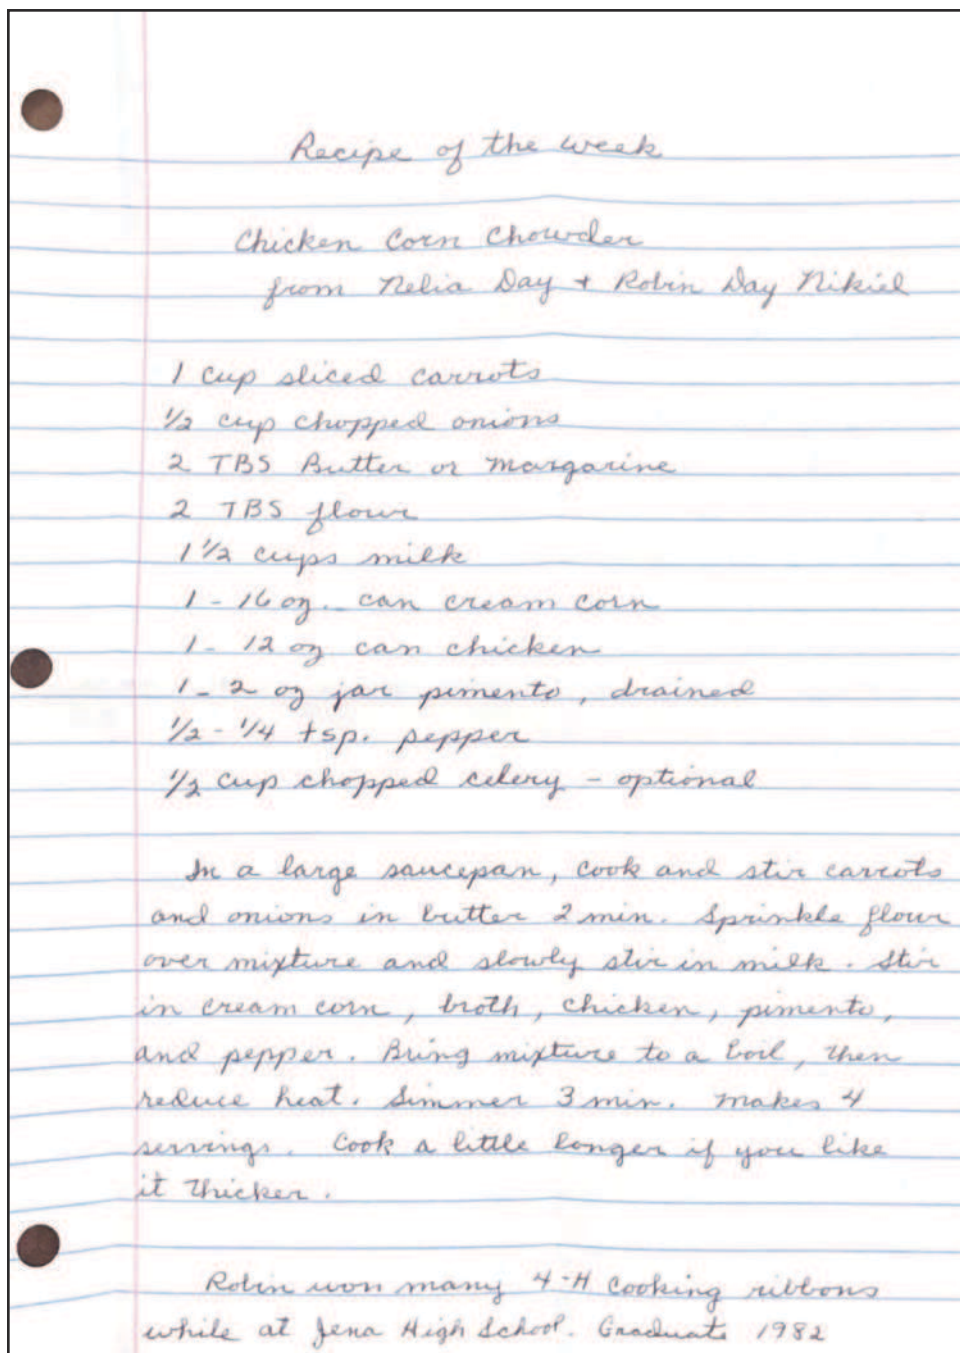 Recipe of the week
Chicken Corn Chowder
from Nelia Day + Robin Day Nikiel
1 cup sliced carrots
1/2 cup chopped onions
2 TBS Butter or margarine
2 TBS flour
1 1/2 cups milk
1 - 16 oz. can cream corn
1 - 12 oz can chicken
1 - 2 oz jar pimento, drained
1/2 - 1/4 tsp. pepper
1/2 cup chopped celery - optional
In a large saucepan, cook and stir carrots
and onions in butter 2 min. Sprinkle flour
over mixture and slowly stir in milk. Stir
in cream corn, broth, chicken, pimento,
and pepper. Bring mixture to a boil, then
reduce heat. Simmer 3 min. makes 4
servings. Cook a little longer if you like
it thicker.
Robin won many 4-H cooking ribbons
while at Jena High School. Graduate 1982